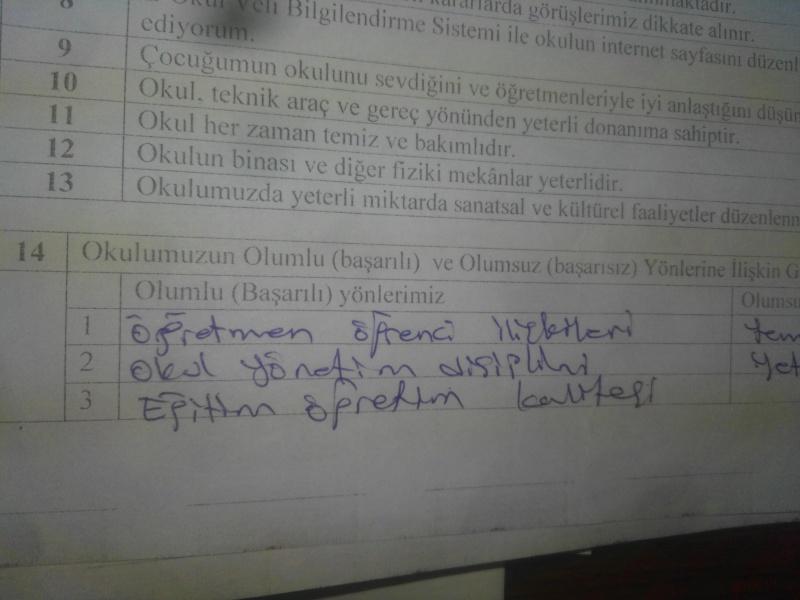 kararlarda görüşlerimiz dikkate alınır.
8 Okul Veli Bilgilendirme Sistemi ile okulun internet sayfasını düzenl
ediyorum.
9 Çocuğumun okulunu sevdiğini ve öğretmenleriyle iyi anlaştığını düşün
10 Okul, teknik araç ve gereç yönünden yeterli donanıma sahiptir.
11 Okul her zaman temiz ve bakımlıdır.
12 Okulun binası ve diğer fiziki mekânlar yeterlidir.
13 Okulumuzda yeterli miktarda sanatsal ve kültürel faaliyetler düzenlenm
14 Okulumuzun Olumlu (başarılı) ve Olumsuz (başarısız) Yönlerine İlişkin G
Olumlu (Başarılı) yönlerimiz Olumsu
1 öğretmen öğrenci ilişkileri tem
2 okul yönetim disiplini yet
3 Eğitim öğretim kalitesi